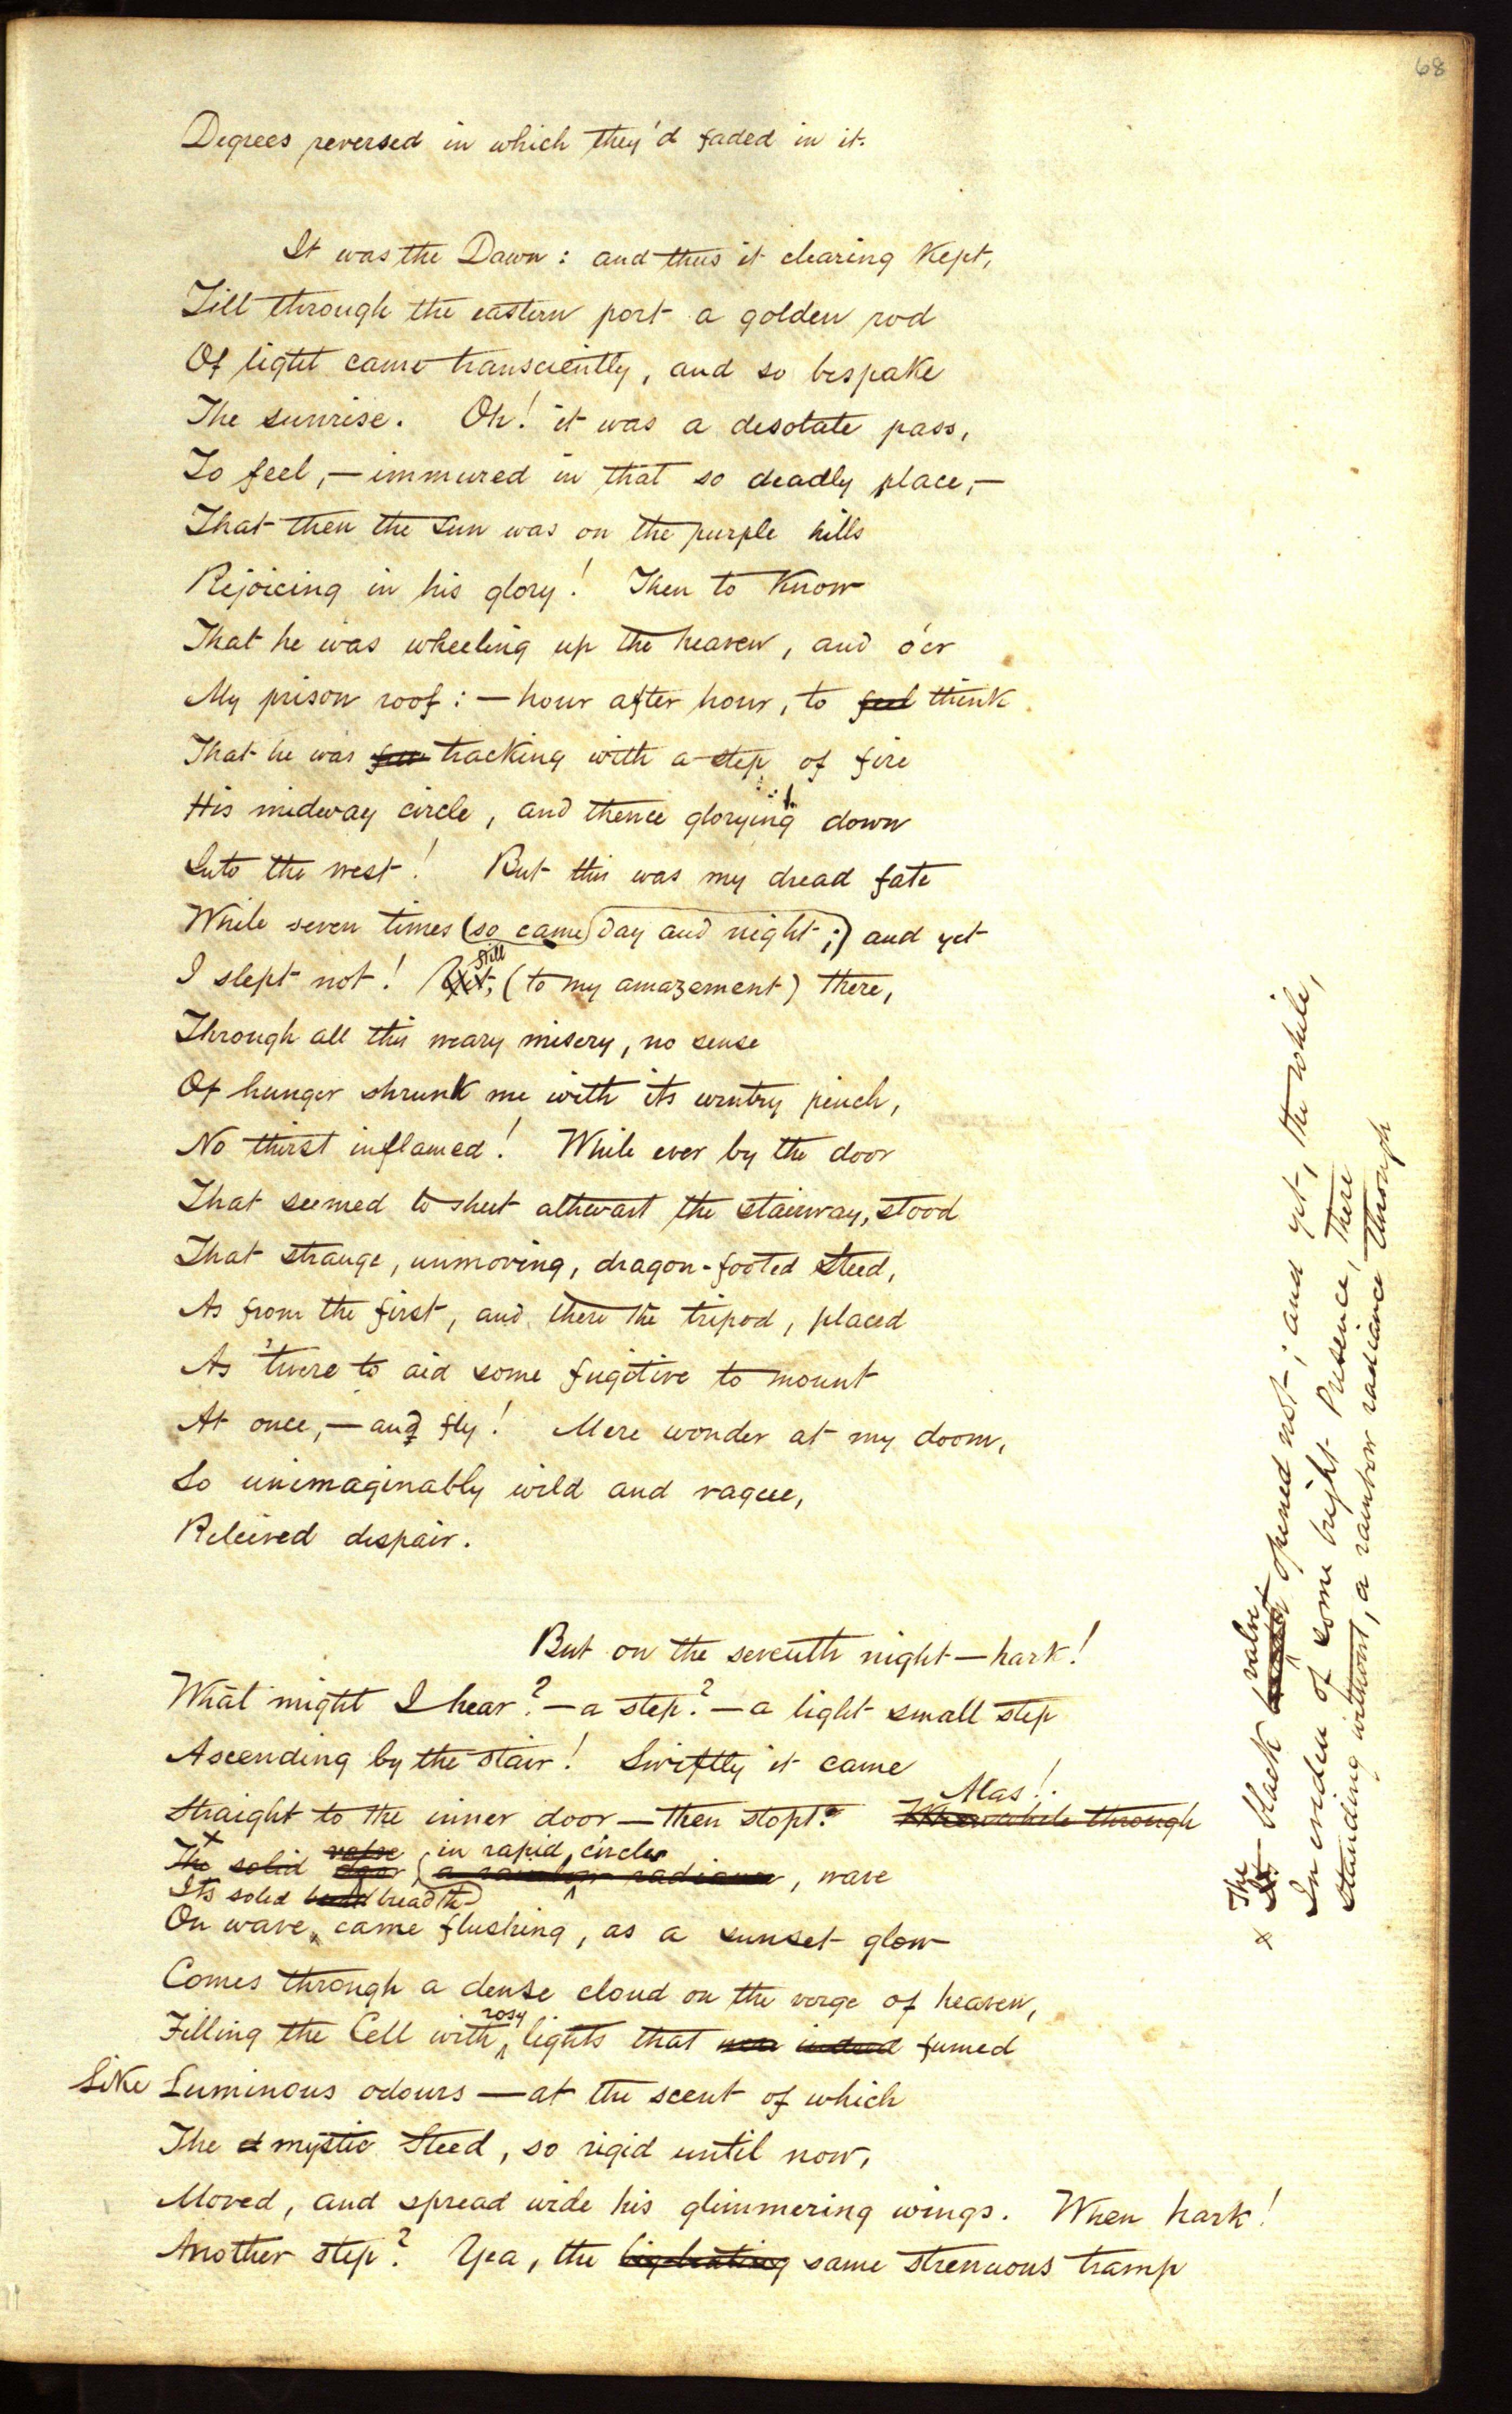 68
Degrees reversed in which they'd faded in it.
It was the Dawn : and thus it clearing kept,
Till through the eastern port a golden rod
Of light came transciently, and so bespake
The sunrise. Oh! it was a desolate pass,
To feel,—immured in that so deadly place,—
That then the Sun was on the purple hills
Rejoicing in his glory! Then to know
That he was wheeling up the heaven, and o'er
My prison roof : — hour after hour, to feel think
That he was tracking with a step of fire
His midway circle, and thence glorying down
Into the west! But this was my dread fate
While seven times (so came) day and night ;) and yet
still
I slept not! Yet, (to my amazement) there,
Through all this weary misery, no sense
Of hunger shrunk me with its wintry pinch,
No thirst inflamed! While ever by the door
That seemed to shut athwart the stairway, stood
That strange, unmoving, dragon-footed Steed,
As from the first, and there the tripod, placed
As 'twere to aid some fugitive to mount
At once,—and fly! Mere wonder at my doom,
So unimaginably wild and vague,
Releived despair.
But on the seventh night—hark!
What might I hear?—a step?—a light small step
Ascending by the stair! Swiftly it came
Alas!
Straight to the inner door—then stopt. Meanwhile through
valve in rapid circles
The solid door, (a rainbow radiance, wave
Its solid breadth)
On wave, came flushing, as a sunset glow
Comes through a dense cloud on the verge of heaven,
rosy
Filling the Cell with lights that indeed fumed
Like Luminous odours—at the scent of which
The mystic Steed, so rigid until now,
Moved, and spread wide his glimmering wings. When hark!
Another step? Yea, the same strenuous tramp
The valve
x black opened not ; and yet, the while,
In eviden of some bright Presence, there
Standing without, a rainbow radiance through